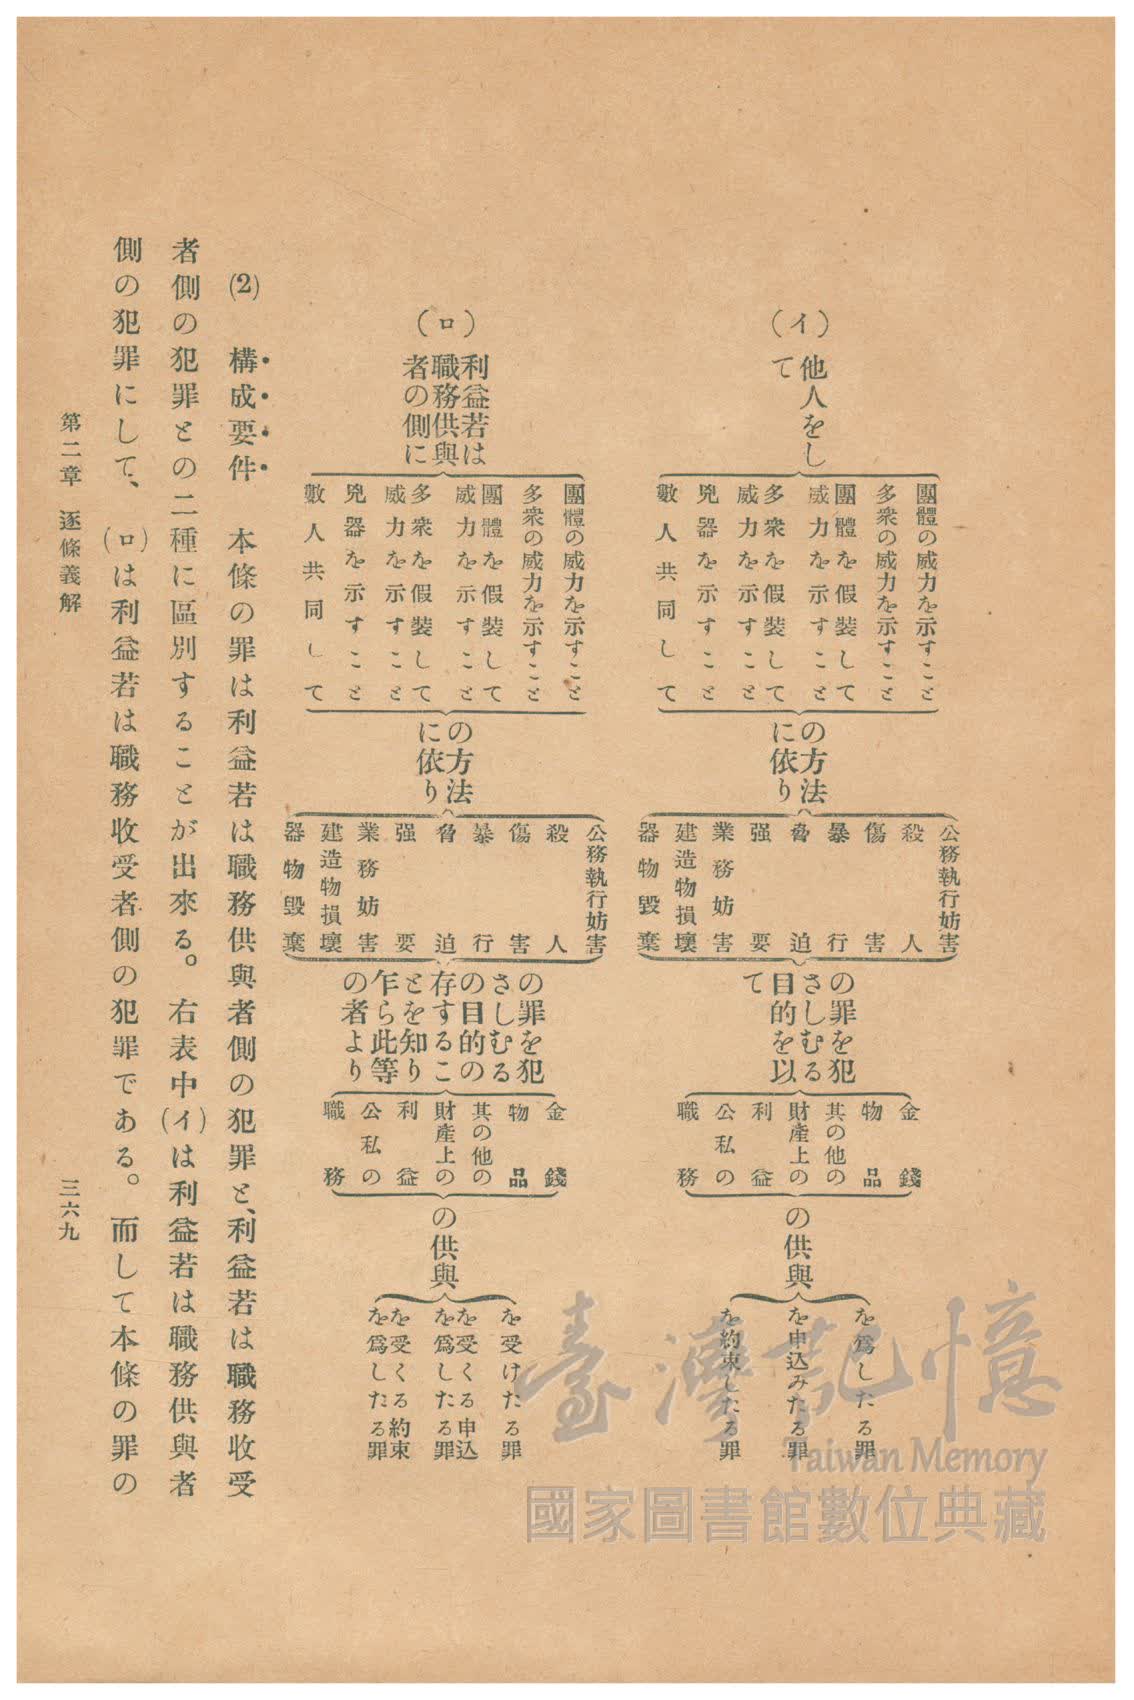 (イ)
他人をし
て
團體の威力を示すこと
多衆の威力を示すこと
團體を假裝して
威力を示すこと
多衆を假裝して
威力を示すこと
兇器を示すこと
數人共同して
の方法
に依り
公務執行妨害
殺人
傷害
暴行
脅迫
强要
業務妨害
建造物損壞
器物毀棄
の罪を犯
さしむる
目的を以
て
金錢
物品
其の他の
財產上の
利益
公私の
職務
の供與
を爲したる罪
を申込みたる罪
を約束したる罪
(ロ)
利益若は
職務供與
者の側に
團體の威力を示すこと
多衆の威力を示すこと
團體を假裝して
威力を示すこと
多衆を假裝して
威力を示すこと
兇器を示すこと
數人共同して
の方法
に依り
公務執行妨害
殺人
傷害
暴行
脅迫
强要
業務妨害
建造物損壞
器物毀棄
の罪を犯
さしむる
の目的の
存するこ
とを知り
乍ら此等
の者より
金錢
物品
其の他の
財產上の
利益
公私の
職務
の供與
を受けたる罪
を受くる申込
を爲したる罪
を受くる約束
を爲したる罪
(2) 構成要件 本條の罪は利益若は職務供與者側の犯罪と、利益若は職務收受
者側の犯罪との二種に區別することが出來る。右表中(イ)は利益若は職務供與者
側の犯罪にして、(ロ)は利益若は職務收受者側の犯罪である。而して本條の罪の
第二章 逐條義解
三六九
臺灣記憶
Taiwan Memory
國家圖書館數位典藏